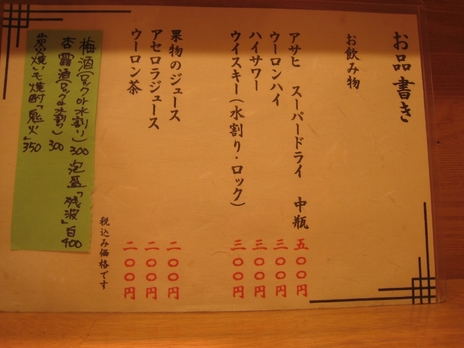 お品書き
お飲み物
アサヒ スーパードライ 中瓶 五〇〇円
ウーロンハイ 三〇〇円
ハイサワー 三〇〇円
ウイスキー（水割り・ロック） 三〇〇円
果物のジュース 二〇〇円
アセロラジュース 二〇〇円
ウーロン茶 二〇〇円
税込み価格です
梅酒（ロックor水割り） 300 泡盛「残波」白 400
杏露酒（ロックor水割り） 300
炭火焼いも焼酎「鬼火」 350